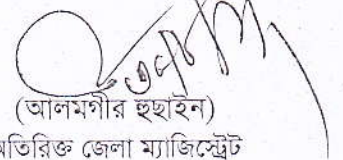 (আলমগীর হুছাইন)
অতিরিক্ত জেলা ম্যাজিস্ট্রেট